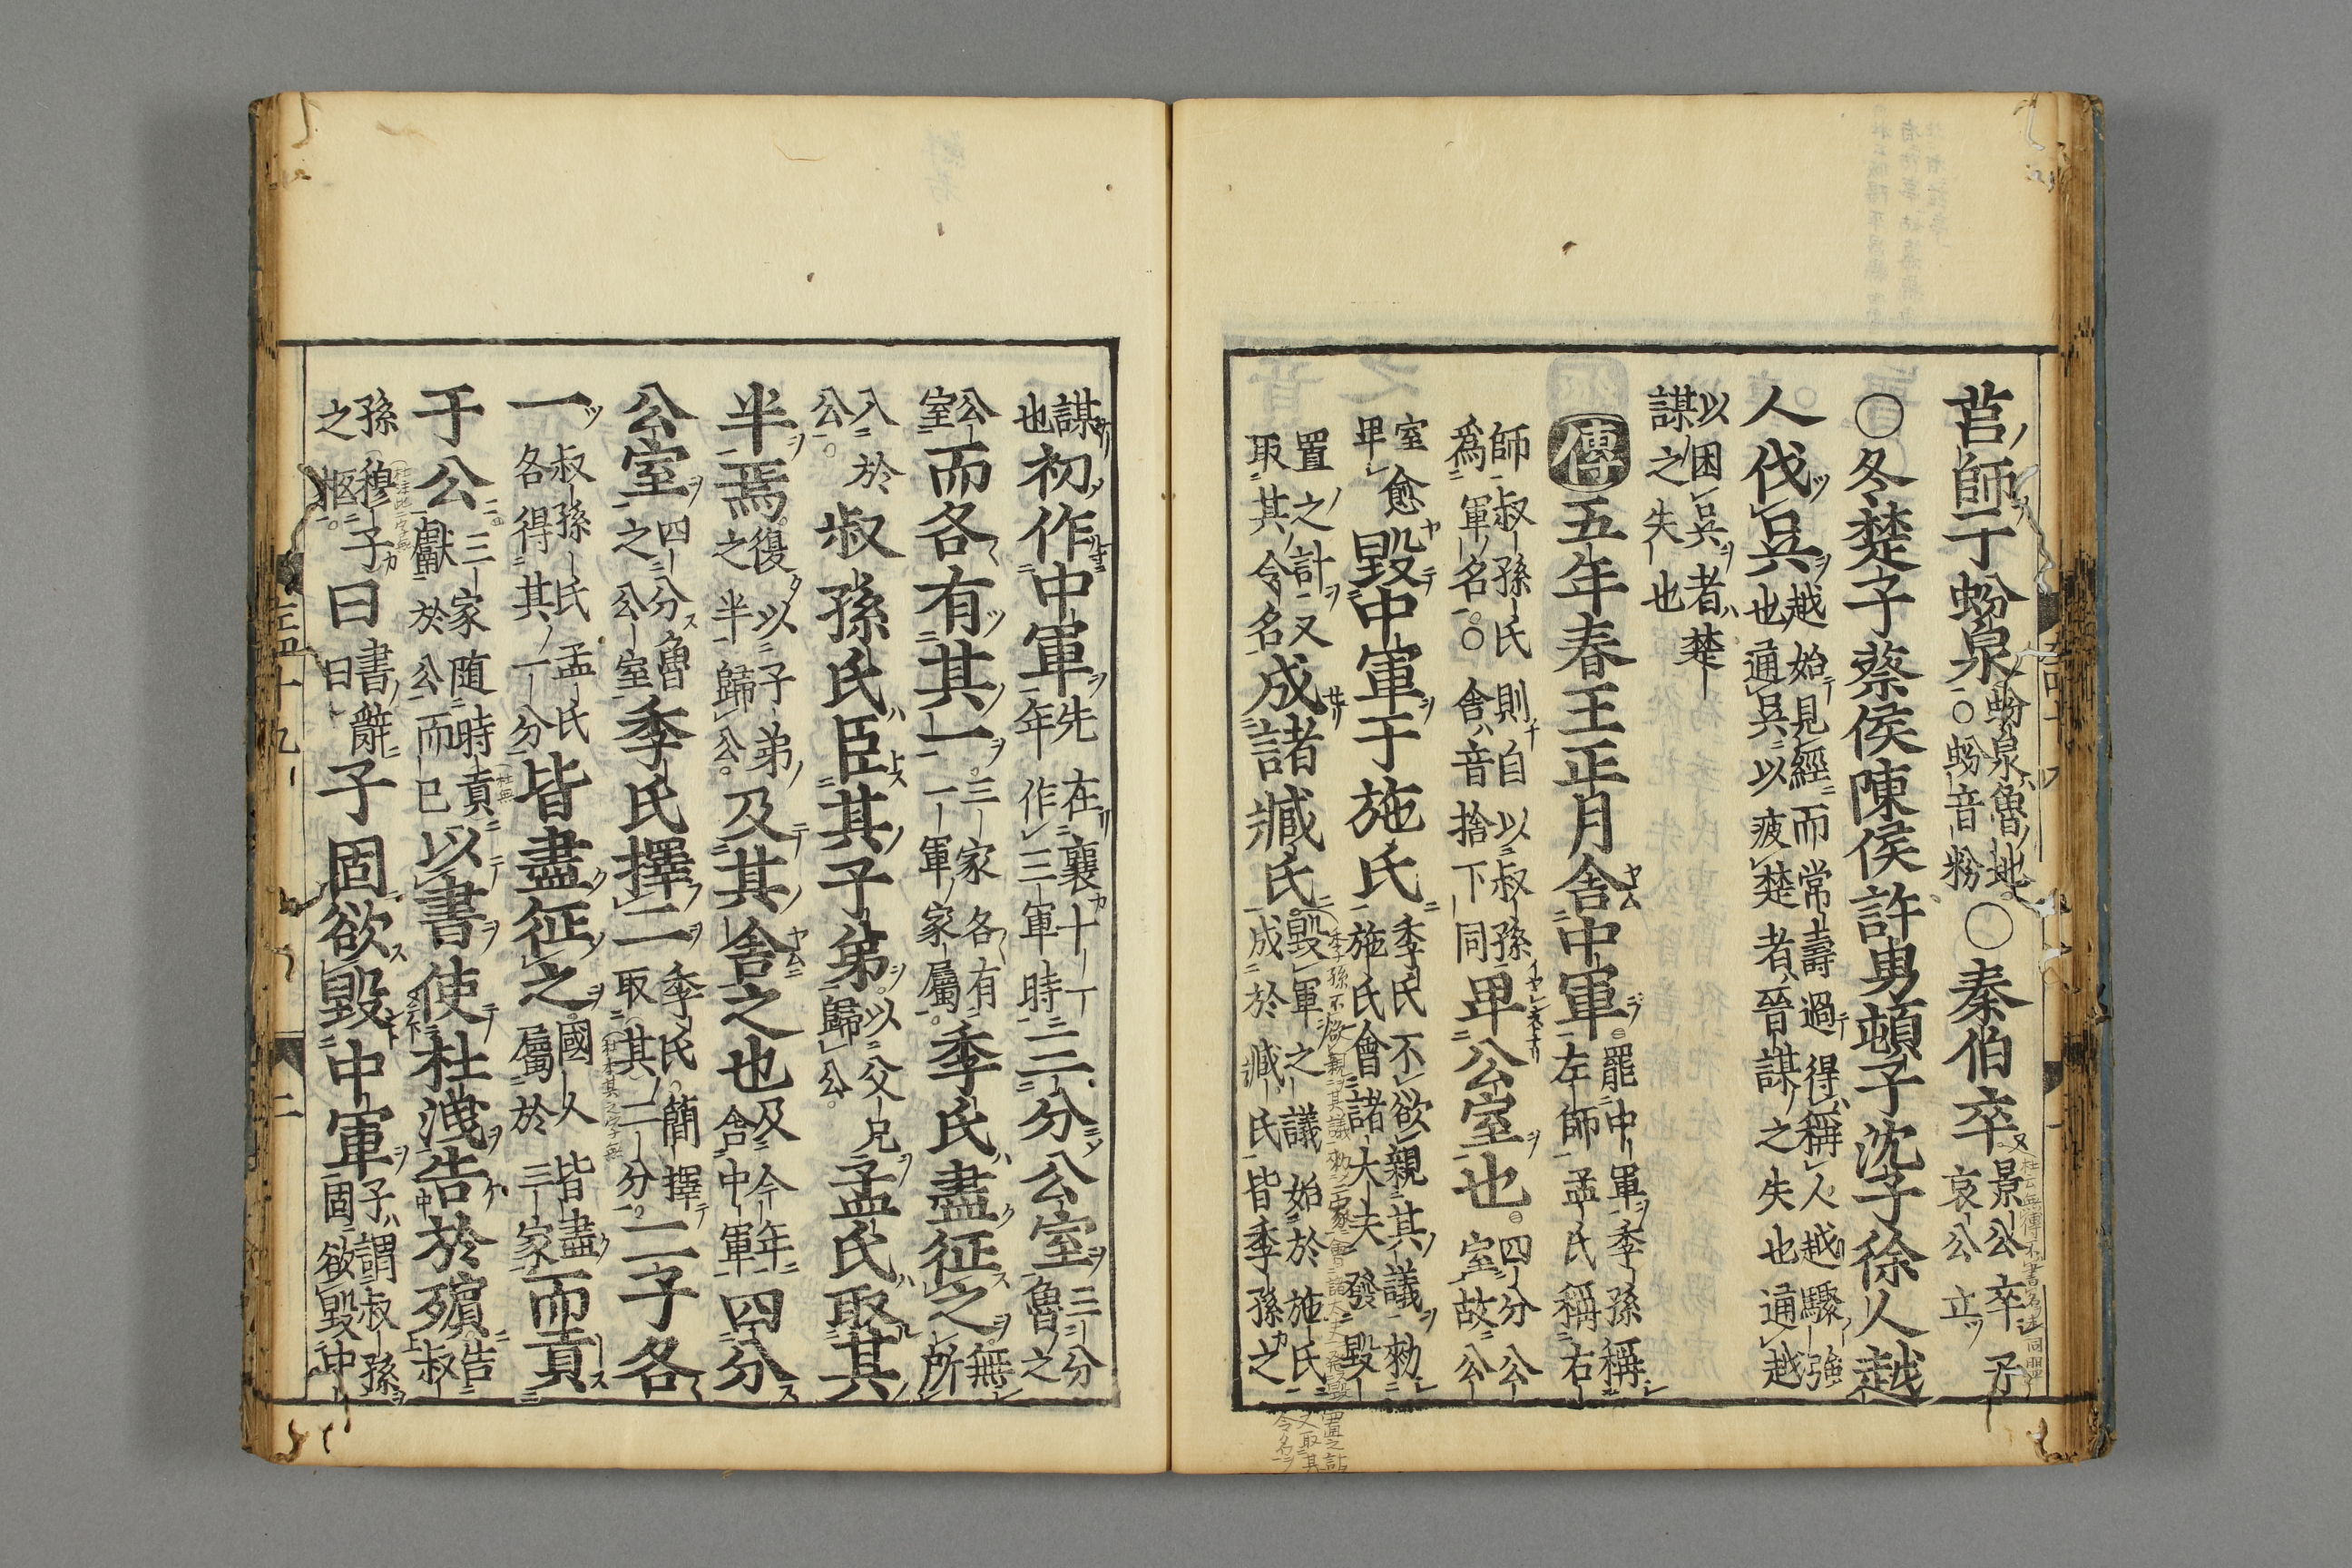 莒師于蚡泉蚡泉魯地○蚡音粉○秦伯卒景公卒子哀公立
○冬楚子蔡侯陳侯許男頓子沈子徐人越
人伐吳越始見經而常壽過得稱人越驟強也通吳以疲楚者晉謀之失也通越
以困吳者楚謀之失也
傳五年春王正月舍中軍罷中軍季孫稱左師孟氏稱右
師叔孫氏則自以叔孫爲軍名○舍音捨下同卑公室也四分公室故公
室愈卑毀中軍于施氏季氏不欲親其議勑施氏會諸大夫發毀
置之計又取其令名成諸臧氏毀軍之議始於施氏成於臧氏皆季孫之
謀也初作中軍先在襄十一年作三軍時三分公室三分魯之
公室而各有其一三家各有一軍家屬季氏盡征之無所
入於公叔孫氏臣其子弟以父兄歸公孟氏取其
半焉復以子弟之半歸公及其舍之也及今年舍中軍四分
公室四分魯之公室季氏擇二季氏簡擇取其二分二子各
一叔孫氏孟氏各得其一分皆盡征之國人皆盡屬於三家而貢
于公三家随時貢獻於公而已以書使杜洩告於殯告叔
孫之柩穆子曰書辭曰子固欲毀中軍子謂叔孫固欲毀中